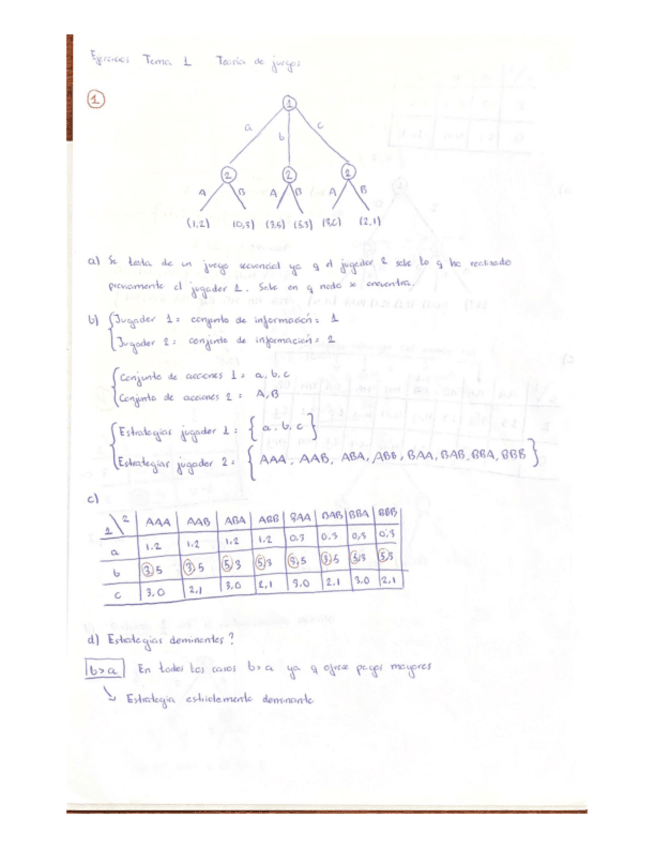 Ejercicios Tema 1 Teoría de juegos
1
1
a b c
2 2 2
A B A B A B
(1,2) (0,3) (3,5) (5,3) (3,0) (2,1)
a) Se trata de un juego secuencial ya q el jugador 2 sabe lo q ha realizado
previamente el jugador 1. Sabe en q nodo se encuentra.
b) Jugador 1 = conjunto de información = 1
Jugador 2 = conjunto de información = 2
Conjunto de acciones 1 = a, b, c
Conjunto de acciones 2 = A, B
Estrategias jugador 1 = { a, b, c }
Estrategias jugador 2 = { AAA, AAB, ABA, ABB, BAA, BAB, BBA, BBB }
c)
1 \ 2 AAA AAB ABA ABB BAA BAB BBA BBB
a 1,2 1,2 1,2 1,2 0,3 0,3 0,3 0,3
b 3,5 3,5 5,3 5,3 3,5 3,5 5,3 5,3
c 3,0 2,1 3,0 2,1 3,0 2,1 3,0 2,1
d) Estrategias dominantes?
b>a En todos los casos b>a ya q ofrece pagos mayores
Estrategia estrictamente dominante